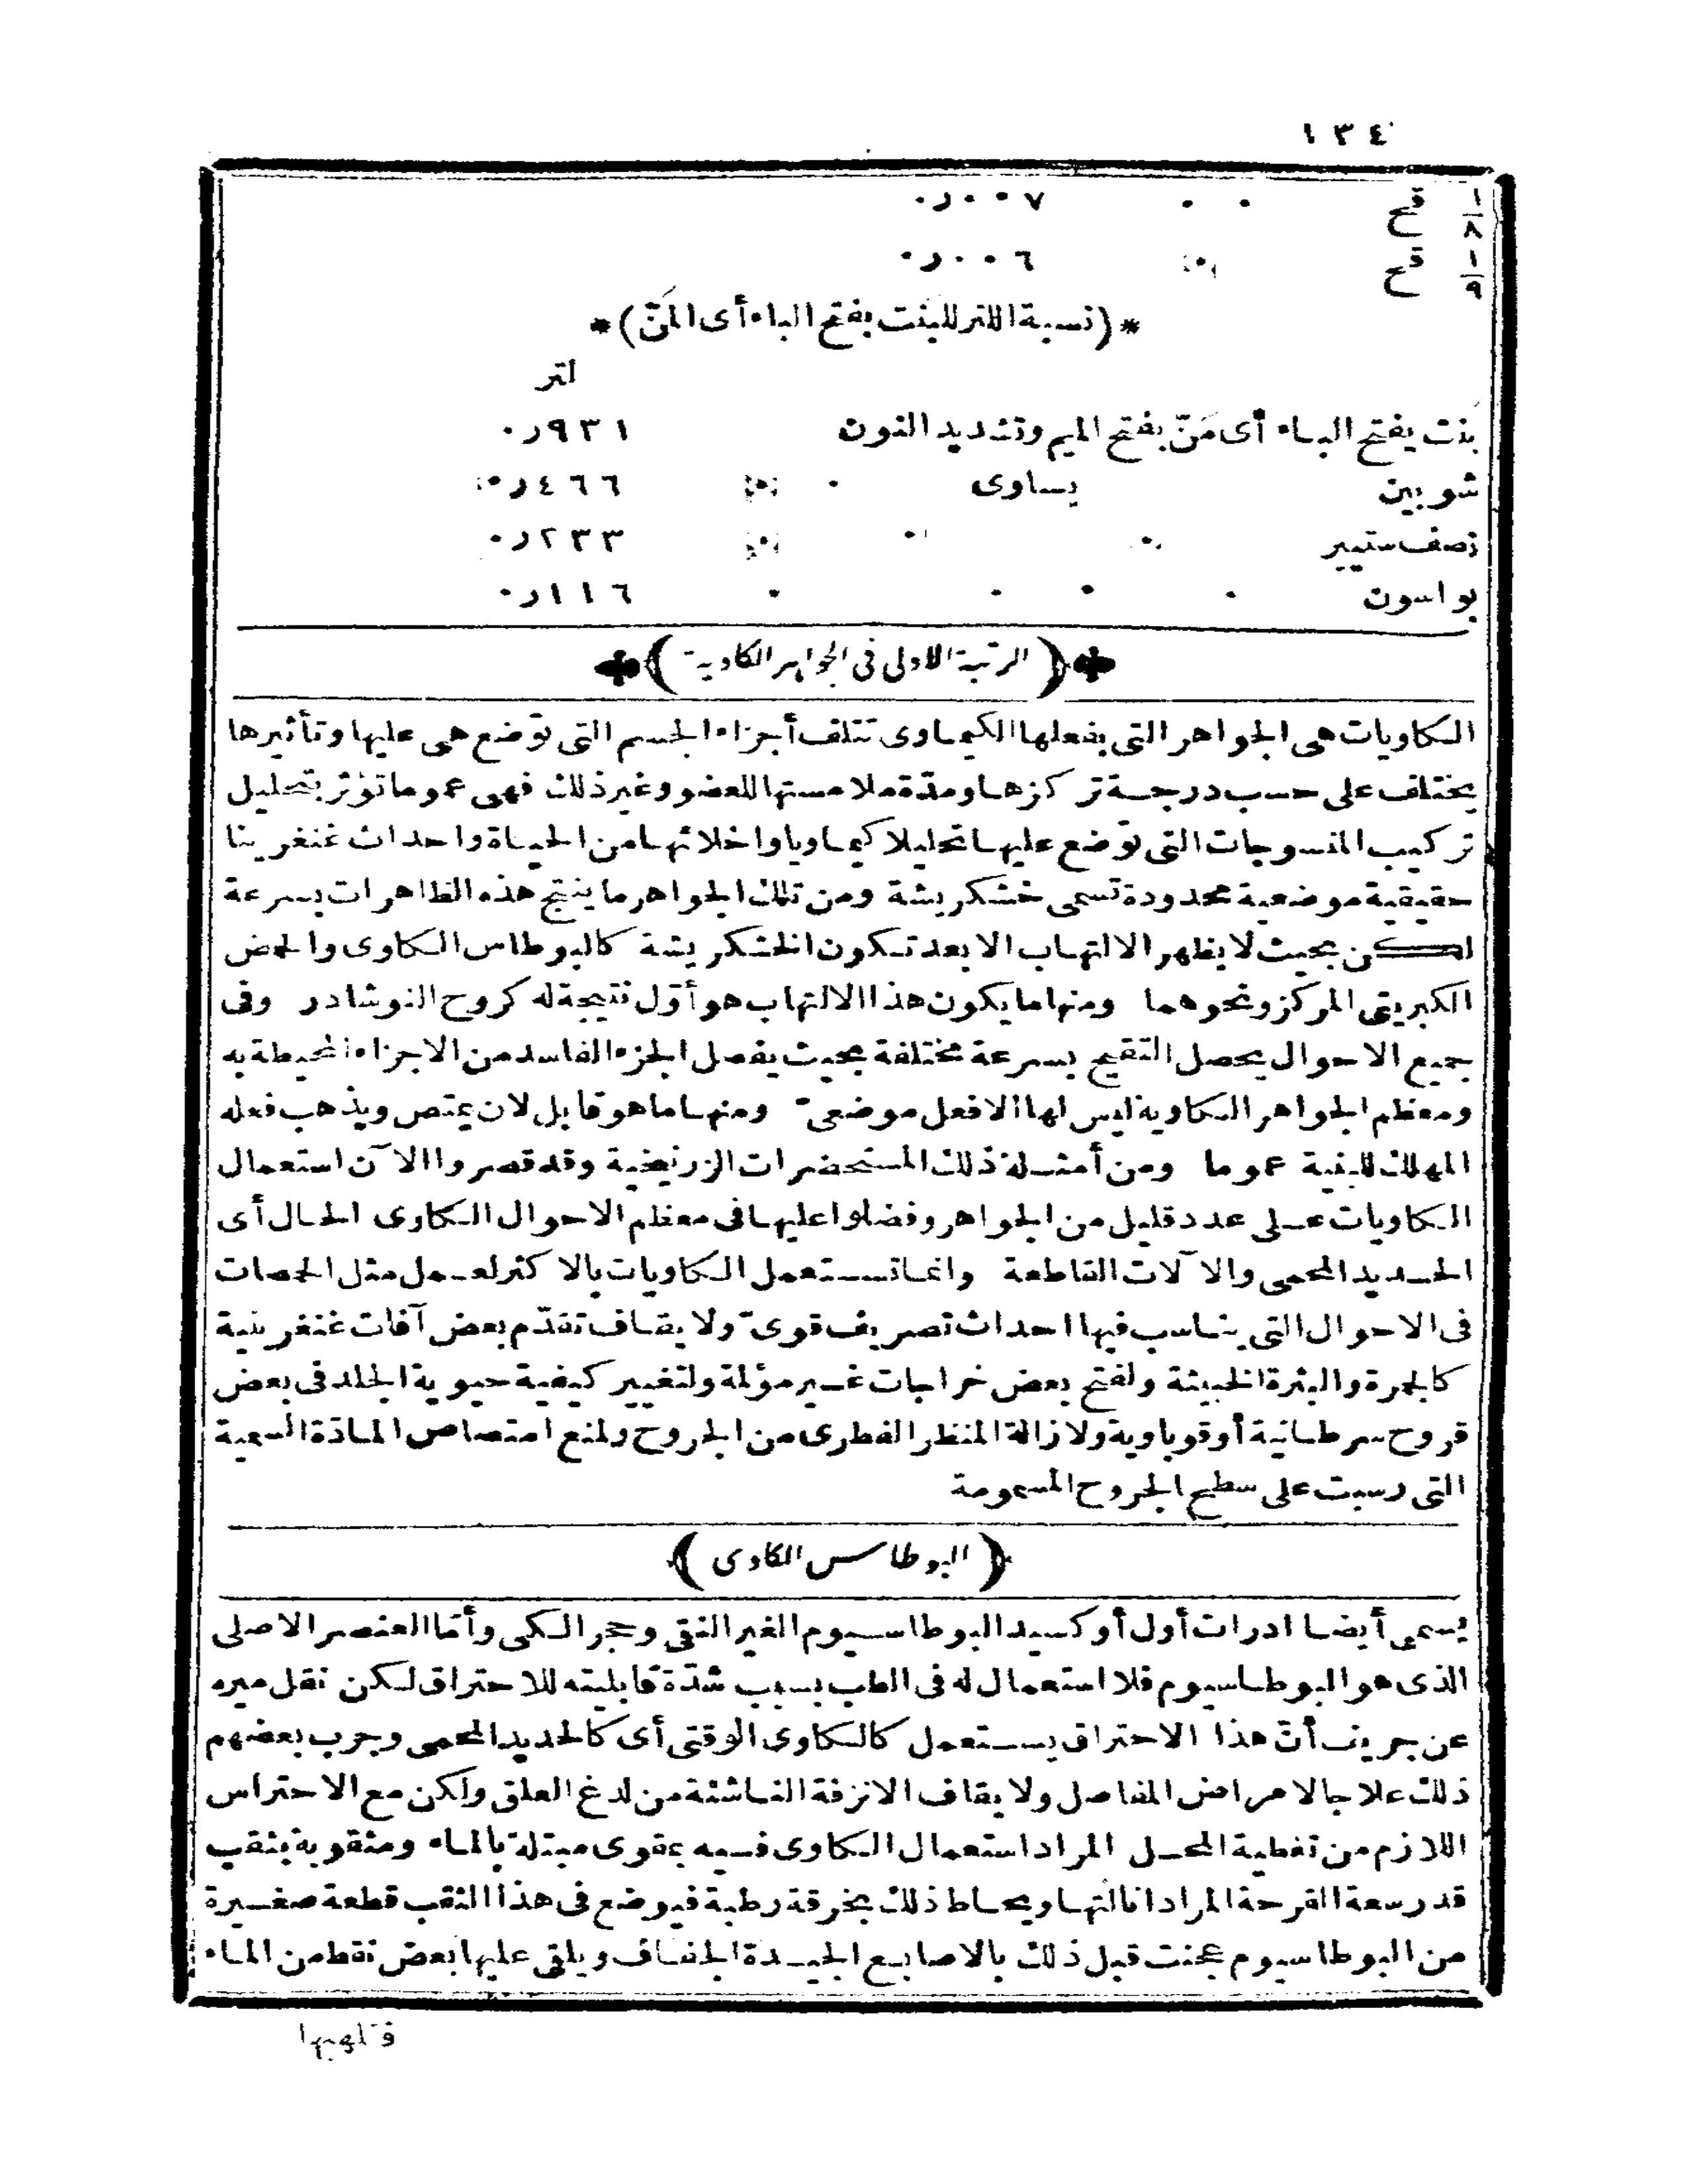 ١٣٤
١/٨ قمح . . ٠ر٠٠٧
١/٩ قمح . ٠ر٠٠٦
*(نسبة اللتر للبنت بفتح الباء أى المَنّ)*
لتر
بَنت بفتح الباء أى مَنّ بفتح الميم وتشديد النون ٠ر٩٣١
شوبين يساوى . . ٠ر٤٦٦
نصف ستيير . . . ٠ر٢٣٣
بواسون . . . . ٠ر١١٦
(الرتبة الاولى فى الجواهر الكاوية)
الكاويات هى الجواهر التى بفعلها الكيماوى تتلف أجزاء الجسم التى توضع هى عليها وتأثيرها
يختلف على حسب درجة تركزها ومدّة ملامستها للعضو وغير ذلك فهى عموما تؤثر بتحليل
تركيب المنسوجات التى توضع عليها تحليلا كيماويا واخلائها من الحياة واحداث غنغرينا
حقيقية موضعية محدودة تسمى خشكريشة ومن تلك الجواهر ما ينتج هذه الظاهرات بسرعة
لكن بحيث لا يظهر الالتهاب الا بعد تكون الخشكريشة كالبوطاس الكاوى والحمض
الكبريتى المركز ونحوهما ومنها ما يكون هذا الالتهاب هو أوّل نتيجة له كروح النوشادر وفى
جميع الاحوال يحصل التقيح بسرعة مختلفة بحيث يفصل الجزء الفاسد من الاجزاء المحيطة به
ومعظم الجواهر الكاوية ليس لها الا فعل موضعىّ ومنها ما هو قابل لان يمتص ويذهب فعله
المهلك للبنية عموما ومن أمثلة ذلك المستحضرات الزرنيخية وقد قصروا الآن استعمال
الكاويات على عدد قليل من الجواهر وفضلوا عليها فى معظم الاحوال الكاوى الحال أى
الحديد المحمى والآلات القاطعة وانما تستعمل الكاويات بالاكثر لعمل مثل الحمصات
فى الاحوال التى يناسب فيها احداث تصريف قوىّ ولايقاف تقدّم بعض آفات غنغرينية
كالجمرة والبثرة الخبيثة ولفتح بعض خراجات غير مؤلمة ولتغيير كيفية حيوية الجلد فى بعض
قروح سرطانية أو قوباوية ولازالة المنظر الفطرى من الجروح ولمنع امتصاص المادّة السمية
التى رسبت على سطح الجروح المسمومة
(البوطاس الكاوى)
يسمى أيضا ادرات أول أوكسيد البوطاسيوم الغير النقى وحجر الكى وأمّا العنصر الاصلى
الذى هو البوطاسيوم فلا استعمال له فى الطب بسبب شدّة قابليته للاحتراق لكن نقل ميره
عن جريف أنّ هذا الاحتراق يستعمل كالكاوى الوقتى أى كالحديد المحمى وجرب بعضهم
ذلك علاجا لامراض المفاصل ولايقاف الانزفة الناشئة من لدغ العلق ولكن مع الاحتراس
اللازم من تغطية المحل المراد استعمال الكاوى فيه بمقوى مبتلة بالماء ومثقوبة بثقب
قدر سعة القرحة المراد انالتها ويحاط ذلك بخرقة رطبة فيوضع فى هذا الثقب قطعة صغيرة
من البوطاسيوم عجنت قبل ذلك بالاصابع الجيدة الجفاف ويلقى عليها بعض نقط من الماء
فتلهبها